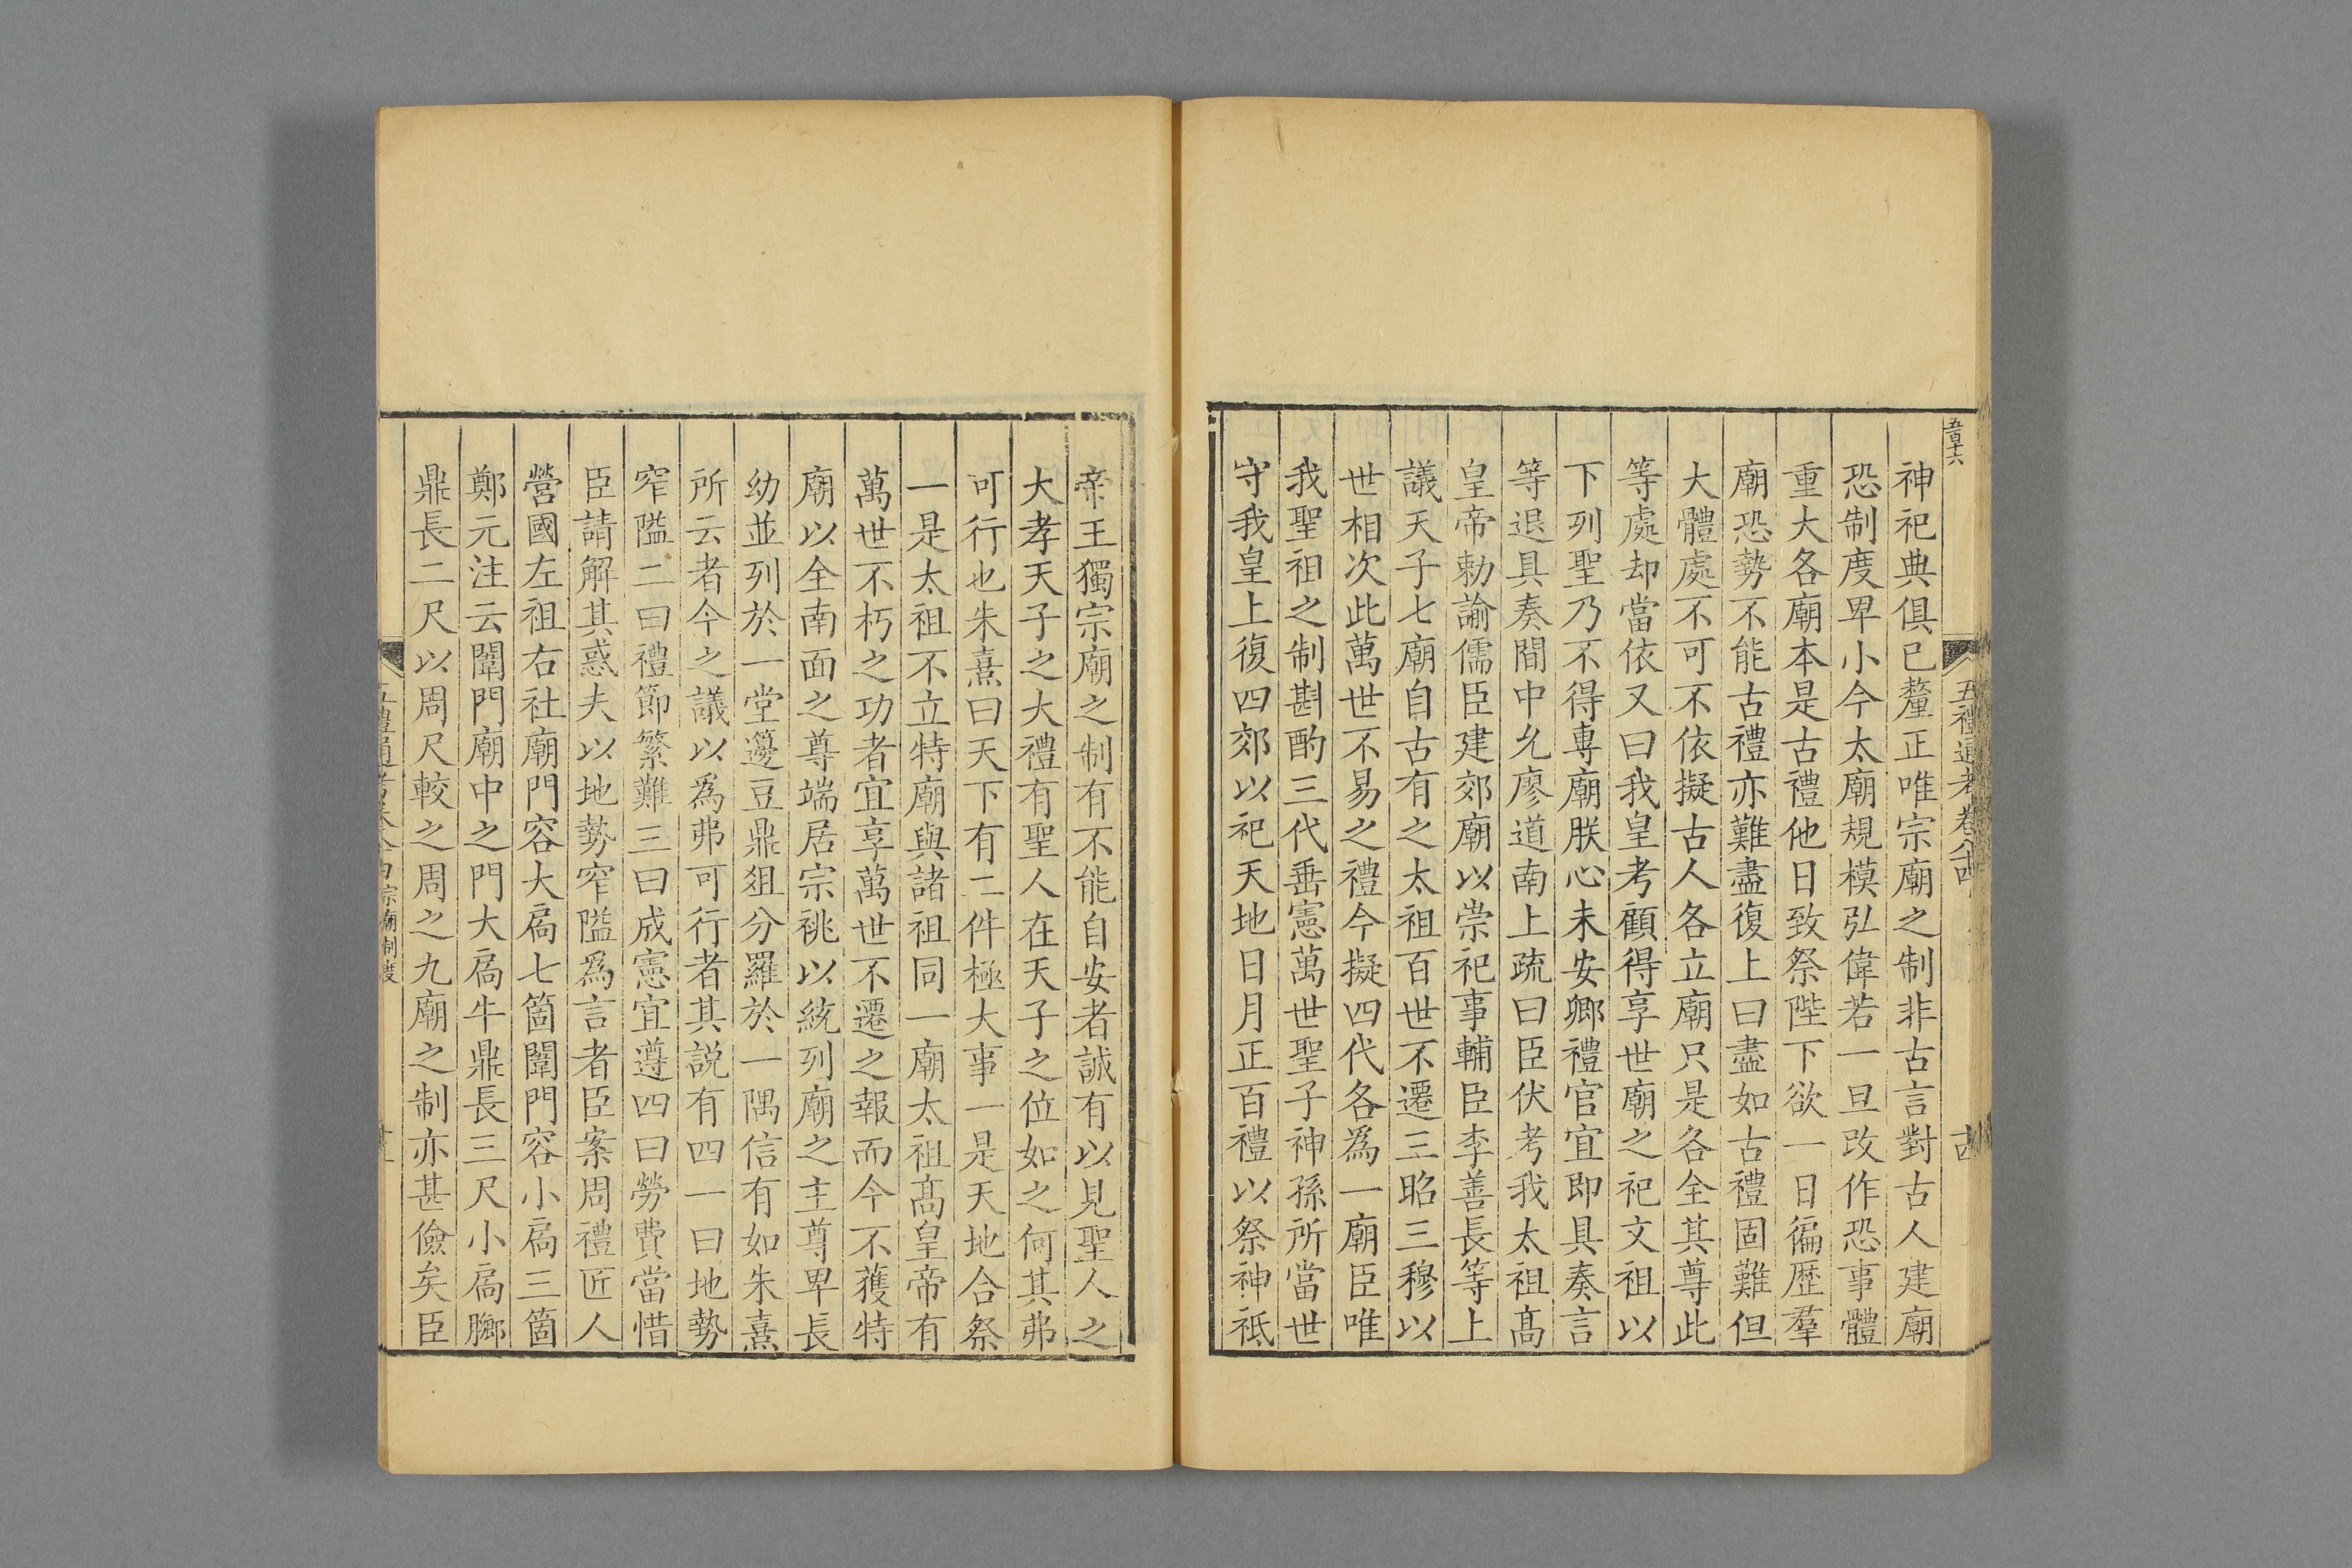 五百十六
五禮通考卷八十四
神祀典俱已釐正唯宗廟之制非古言對古人建廟
恐制度卑小今太廟規模弘偉若一旦改作恐事體
重大各廟本是古禮他日致祭陛下欲一日徧歷羣
廟恐勢不能古禮亦難盡復上曰盡如古禮固難但
大體處不可不依擬古人各立廟只是各全其尊此
等處却當依又曰我皇考顧得享世廟之祀文祖以
下列聖乃不得專廟朕心未安卿禮官宜即具奏言
等退具奏間中允廖道南上疏曰臣伏考我太祖高
皇帝勅諭儒臣建郊廟以崇祀事輔臣李善長等上
議天子七廟自古有之太祖百世不遷三昭三穆以
世相次此萬世不易之禮今擬四代各為一廟臣唯
我聖祖之制斟酌三代垂憲萬世聖子神孫所當世
守我皇上復四郊以祀天地日月正百禮以祭神祗
帝王獨宗廟之制有不能自安者誠有以見聖人之
大孝天子之大禮有聖人在天子之位如之何其弗
可行也朱熹曰天下有二件極大事一是天地合祭
一是太祖不立特廟與諸祖同一廟太祖高皇帝有
萬世不朽之功者宜享萬世不遷之報而今不獲特
廟以全南面之尊端居宗祧以統列廟之主尊卑長
幼並列於一堂籩豆鼎俎分羅於一隅信有如朱熹
所云者今之議以為弗可行者其説有四一曰地勢
窄隘二曰禮節繁難三曰成憲宜遵四曰勞費當惜
臣請解其惑夫以地勢窄隘為言者臣案周禮匠人
營國左祖右社廟門容大扃七箇闈門容小扃三箇
鄭元注云闈門廟中之門大扃牛鼎長三尺小扃膷
鼎長二尺以周尺較之周之九廟之制亦甚儉矣臣
宗廟制度